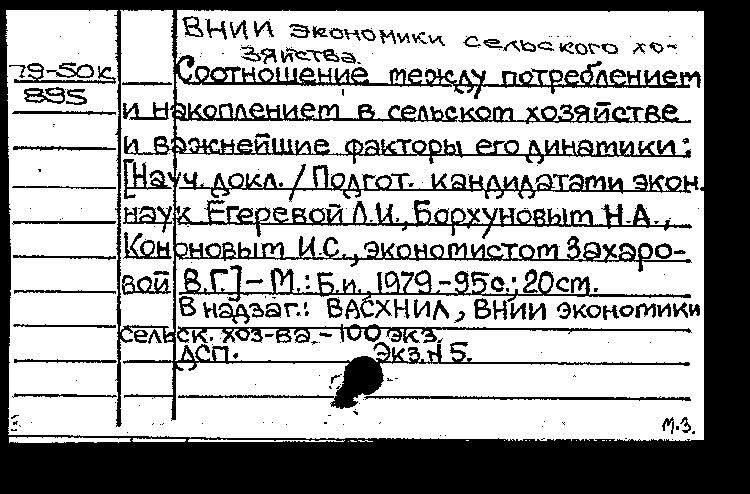 ВНИИ экономики сельского хо-
зяйства.
79-50К
895
Соотношение между потреблением
и накоплением в сельском хозяйстве
и важнейшие факторы его динамики:
[Науч. докл. / Подгот. кандидатами экон.
наук Егеревой Л.И., Борхуновым Н.А.,
Кононовым И.С., экономистом Захаро-
вой В.Г.] – М.: Б.и., 1979 – 95с.; 20см.
В надзаг.: ВАСХНИЛ, ВНИИ экономики
сельск. хоз-ва. – 100 экз.
ДСП. Экз.N 5.
М.З.